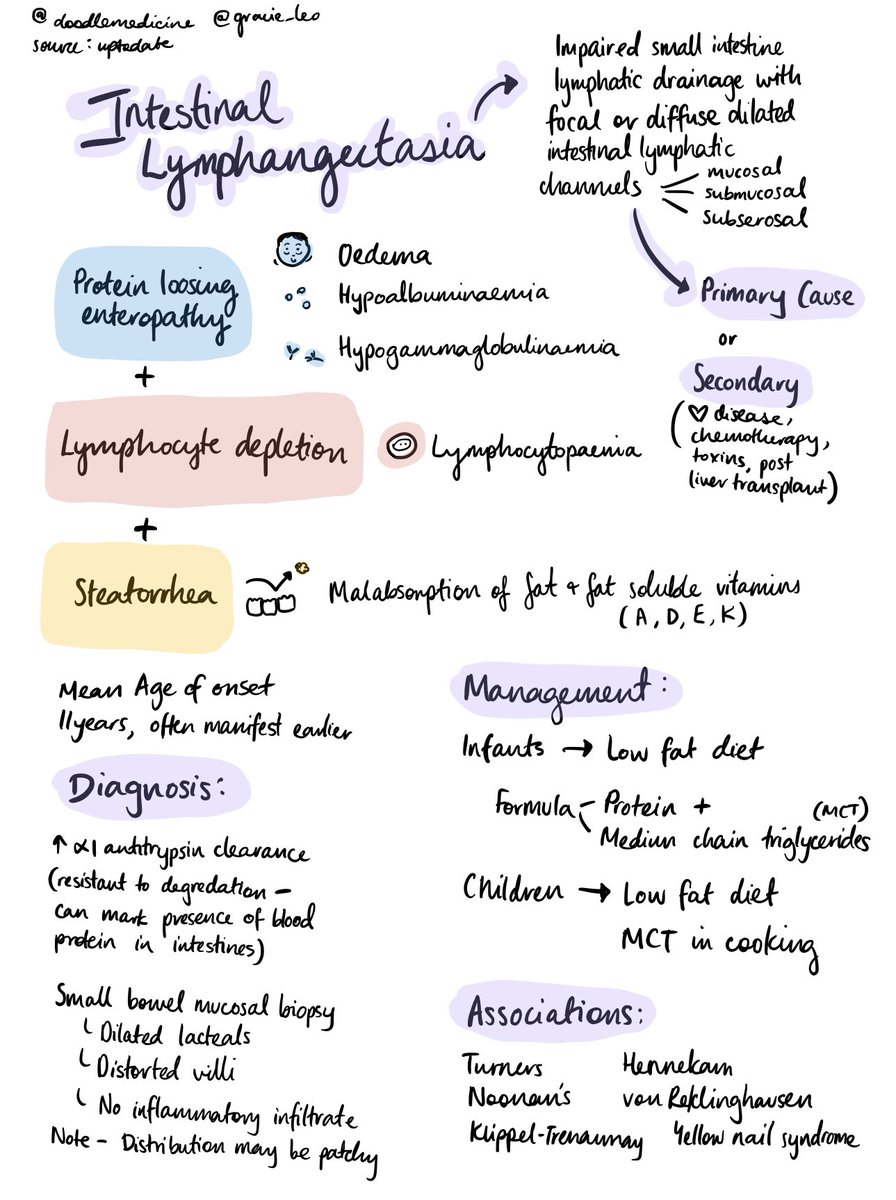 @doodlemedicine @gracie_leo
source: uptodate
Intestinal
Lymphangectasia
Impaired small intestine
lymphatic drainage with
focal or diffuse dilated
intestinal lymphatic
channels
mucosal
submucosal
subserosal
Primary Cause
or
Secondary
(♡ disease,
chemotherapy,
toxins, post
liver transplant)
Protein loosing
enteropathy
Oedema
Hypoalbuminaemia
Hypogammaglobulinaemia
+
Lymphocyte depletion
Lymphocytopaenia
+
Steatorrhea
Malabsorption of fat + fat soluble vitamins
(A, D, E, K)
Mean Age of onset
11years, often manifest earlier
Diagnosis:
↑ α1 antitrypsin clearance
(resistant to degredation -
can mark presence of blood
protein in intestines)
Small bowel mucosal biopsy
Dilated lacteals
Distorted villi
No inflammatory infiltrate
Note - Distribution may be patchy
Management:
Infants → Low fat diet
Formula - Protein + (MCT)
Medium chain triglycerides
Children → Low fat diet
MCT in cooking
Associations:
Turners Hennekam
Noonan's von Reklinghausen
Klippel-Trenaunay Yellow nail syndrome